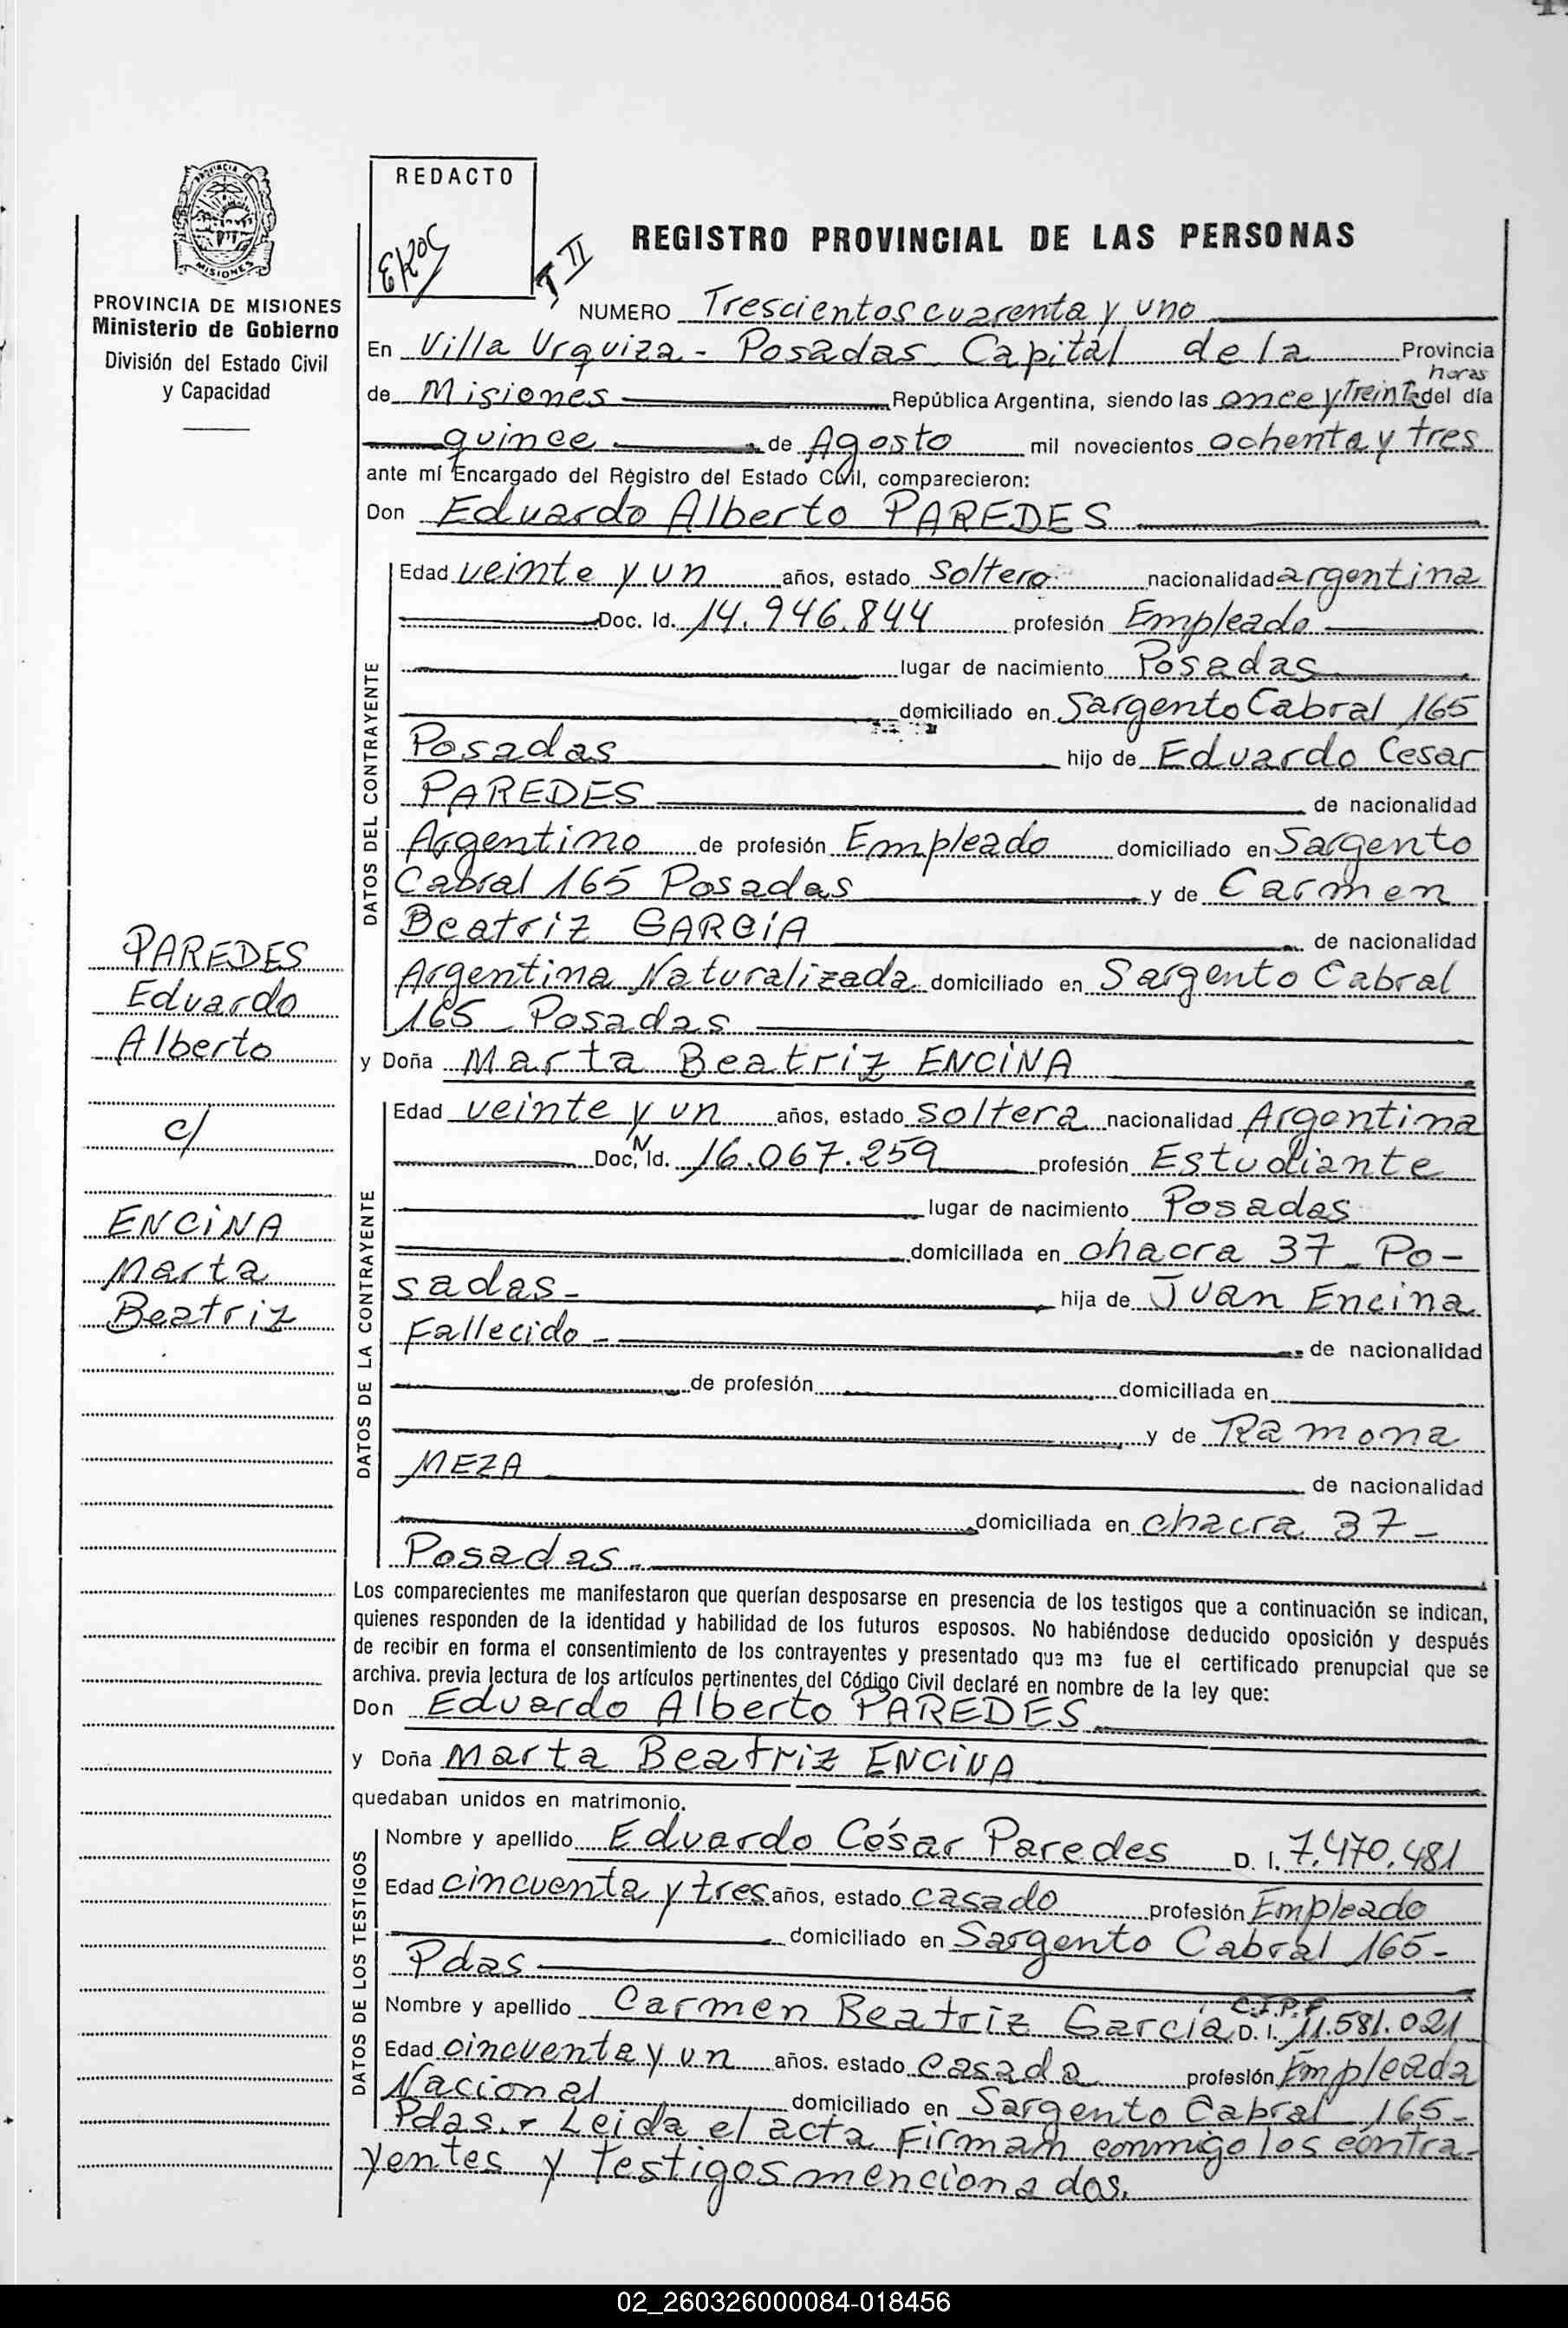 REDACTO
T II
PROVINCIA DE MISIONES
MISIONES
PROVINCIA DE MISIONES
Ministerio de Gobierno
División del Estado Civil
y Capacidad
PAREDES
Eduardo
Alberto
c/
ENCINA
Marta
Beatriz
REGISTRO PROVINCIAL DE LAS PERSONAS
NUMERO Trescientos cuarenta y uno
En Villa Urquiza - Posadas Capital de la Provincia
horas
de Misiones República Argentina, siendo las once y treinta del día
quince de Agosto mil novecientos ochenta y tres
ante mí Encargado del Registro del Estado Civil, comparecieron:
Don Eduardo Alberto PAREDES
DATOS DEL CONTRAYENTE
Edad veinte y un años, estado Soltero nacionalidad argentina
Doc. Id. 14.946.844 profesión Empleado
lugar de nacimiento Posadas
domiciliado en Sargento Cabral 165
Posadas hijo de Eduardo Cesar
PAREDES de nacionalidad
Argentino de profesión Empleado domiciliado en Sargento
Cabral 165 Posadas y de Carmen
Beatriz GARCIA de nacionalidad
Argentina Naturalizada domiciliado en Sargento Cabral
165 - Posadas
y Doña Marta Beatriz ENCINA
DATOS DE LA CONTRAYENTE
Edad veinte y un años, estado soltera nacionalidad Argentina
Doc. N Id. 16.067.259 profesión Estudiante
lugar de nacimiento Posadas
domiciliada en chacra 37 - Po-
sadas - hija de Juan Encina
Fallecido - de nacionalidad
de profesión domiciliada en
y de Ramona
MEZA de nacionalidad
domiciliada en chacra 37 -
Posadas.
Los comparecientes me manifestaron que querían desposarse en presencia de los testigos que a continuación se indican,
quienes responden de la identidad y habilidad de los futuros esposos. No habiéndose deducido oposición y después
de recibir en forma el consentimiento de los contrayentes y presentado que me fue el certificado prenupcial que se
archiva. previa lectura de los artículos pertinentes del Código Civil declaré en nombre de la ley que:
Don Eduardo Alberto PAREDES
y Doña Marta Beatriz ENCINA
quedaban unidos en matrimonio.
DATOS DE LOS TESTIGOS
Nombre y apellido Eduardo César Paredes D. I. 7.470.481
Edad cincuenta y tres años, estado casado profesión Empleado
domiciliado en Sargento Cabral 165 -
Pdas
C.I.P.F
Nombre y apellido Carmen Beatriz García D. I. 11.581.021
Edad cincuenta y un años. estado casada profesión Empleada
Nacional domiciliado en Sargento Cabral 165 -
Pdas. - Leida el acta Firman conmigo los contra-
yentes y testigos mencionados.
02_260326000084-018456